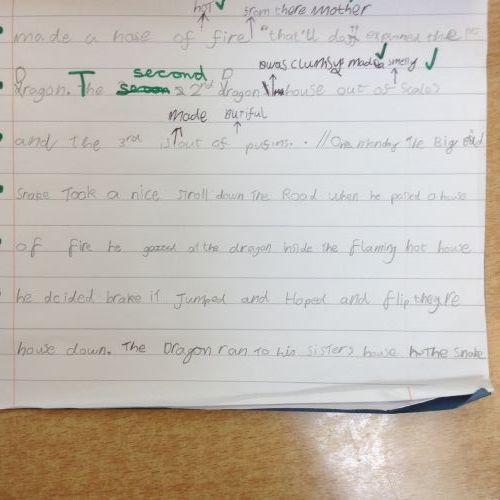 hot from there mother
made a hose of fire "that'll do" expained the
was clumsy made a smelly
second
dragon. The 2nd dragon house out of scales
made
and the 3rd is out of . // One monday The Big bad
snake Took a nice stroll down The Road when he passed a house
of fire he gazzed at the dragon inside the flaming hot house
he dcided brake it Jumped and Hoped and flip theyre
house down. The Dragon ran To his sisters house The snake